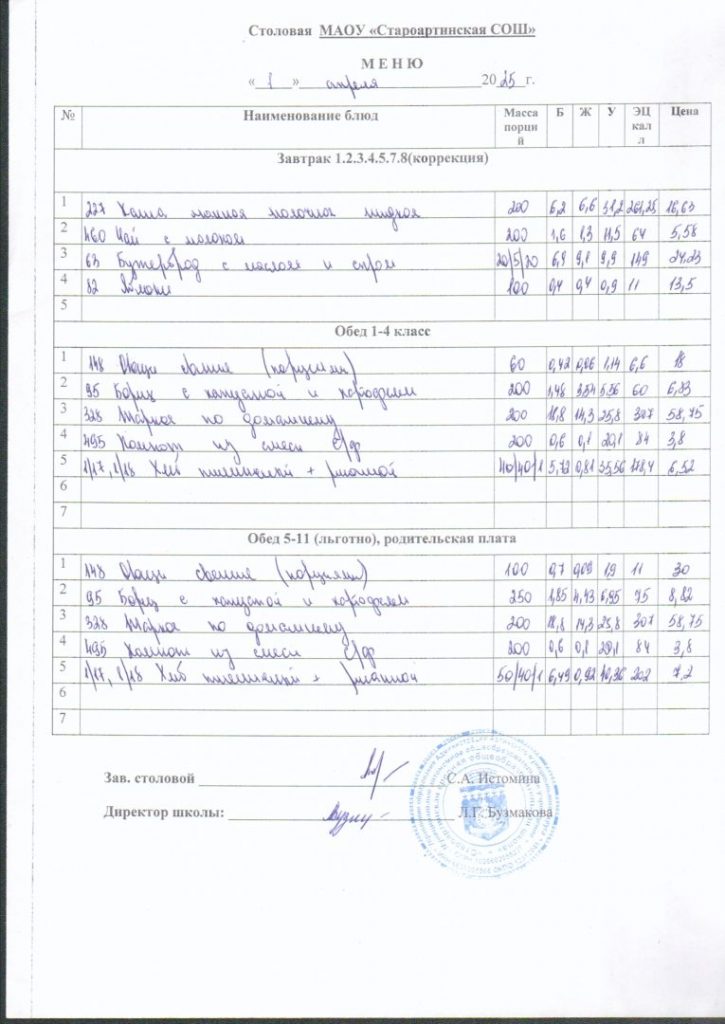 Столовая МАОУ «Староартинская СОШ»
М Е Н Ю
« 1 » апреля 2025 г.
№ Наименование блюд Масса порций Б Ж У ЭЦ калл Цена
Завтрак 1.2.3.4.5.7.8(коррекция)
1 227 Каша манная молочная жидкая 200 6,2 6,6 31,2 261,25 16,63
2 460 Чай с молоком 200 1,6 1,3 11,5 64 5,58
3 63 Бутерброд с маслом и сыром 20/5/20 6,9 9,1 9,9 149 24,23
4 82 Яблоки 100 0,4 0,4 0,9 11 13,5
5
Обед 1-4 класс
1 148 Овощи свежие (порциями) 60 0,42 0,06 1,14 6,6 18
2 95 Борщ с капустой и картофелем 200 1,48 3,54 5,56 60 6,83
3 328 Жаркое по домашнему 200 18,8 14,3 25,8 307 58,75
4 495 Компот из смеси с/ф 200 0,6 0,1 20,1 84 3,8
5 1/17, 1/18 Хлеб пшеничный + ржаной 40/40/1 5,73 0,81 35,56 178,4 6,52
6
7
Обед 5-11 (льготно), родительская плата
1 148 Овощи свежие (порциями) 100 0,7 0,09 1,9 11 30
2 95 Борщ с капустой и картофелем 250 1,85 4,43 6,95 75 8,82
3 328 Жаркое по домашнему 200 18,8 14,3 25,8 307 58,75
4 495 Компот из смеси с/ф 200 0,6 0,1 20,1 84 3,8
5 1/17, 1/18 Хлеб пшеничный + ржаной 50/40/1 6,49 0,92 40,36 202 7,2
6
7
Зав. столовой С.А. Истомина
Директор школы: Л.Г. Бузмакова